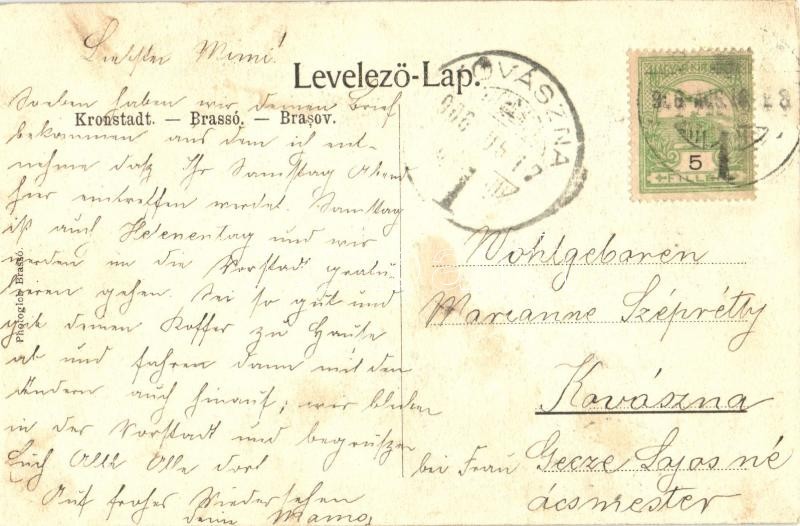 Liebster Mimi!
Levelezö-Lap.
Kronstadt. — Brassó. — Braşov.
Soeben haben wir deinen Brief
bekommen aus dem ich ent-
nehme daß Ihr Samstag Abend
hier eintreffen werdet. Samstag
ist auch Helenentag und wir
werden in die Vorstadt gratu-
lieren gehen. Sei so gut und
gib deinen Koffer zu Hause
ab und fahren dann mit den
Andern auch hinauf; wir bleiben
in der Vorstadt und begrüszen
Euch Alle dort
Auf frohes Wiedersehen
deine Mama
Photoglob Brassó.
KOVÁSZNA
MAGYAR KIR. POSTA
5
FILLÉR
Wohlgeboren
Marianne Széprétty
Kovászna
bei Frau Gecze Lajos né
ácsmester